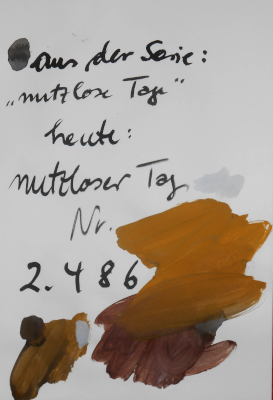 aus der Serie:
„nutzlose Tage“
heute:
nutzloser Tag
Nr.
2.486